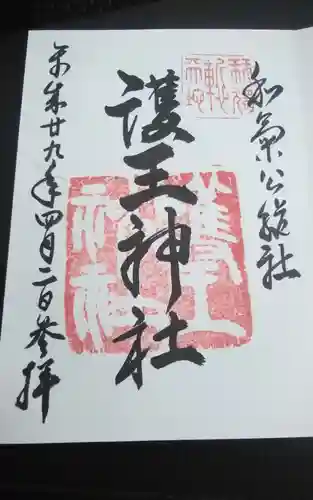 和氣公綜社
護王神社
平成廿九年四月二日参拝
護王神社